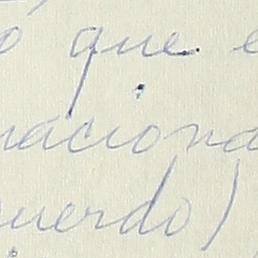 o que e
naciona
uerdo)